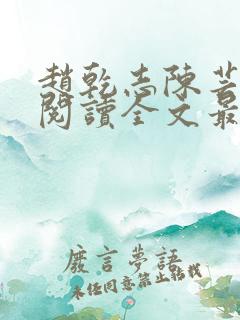 趙乾志陳芸
閱讀全文最
廢言夢語
未经同意禁止轉載